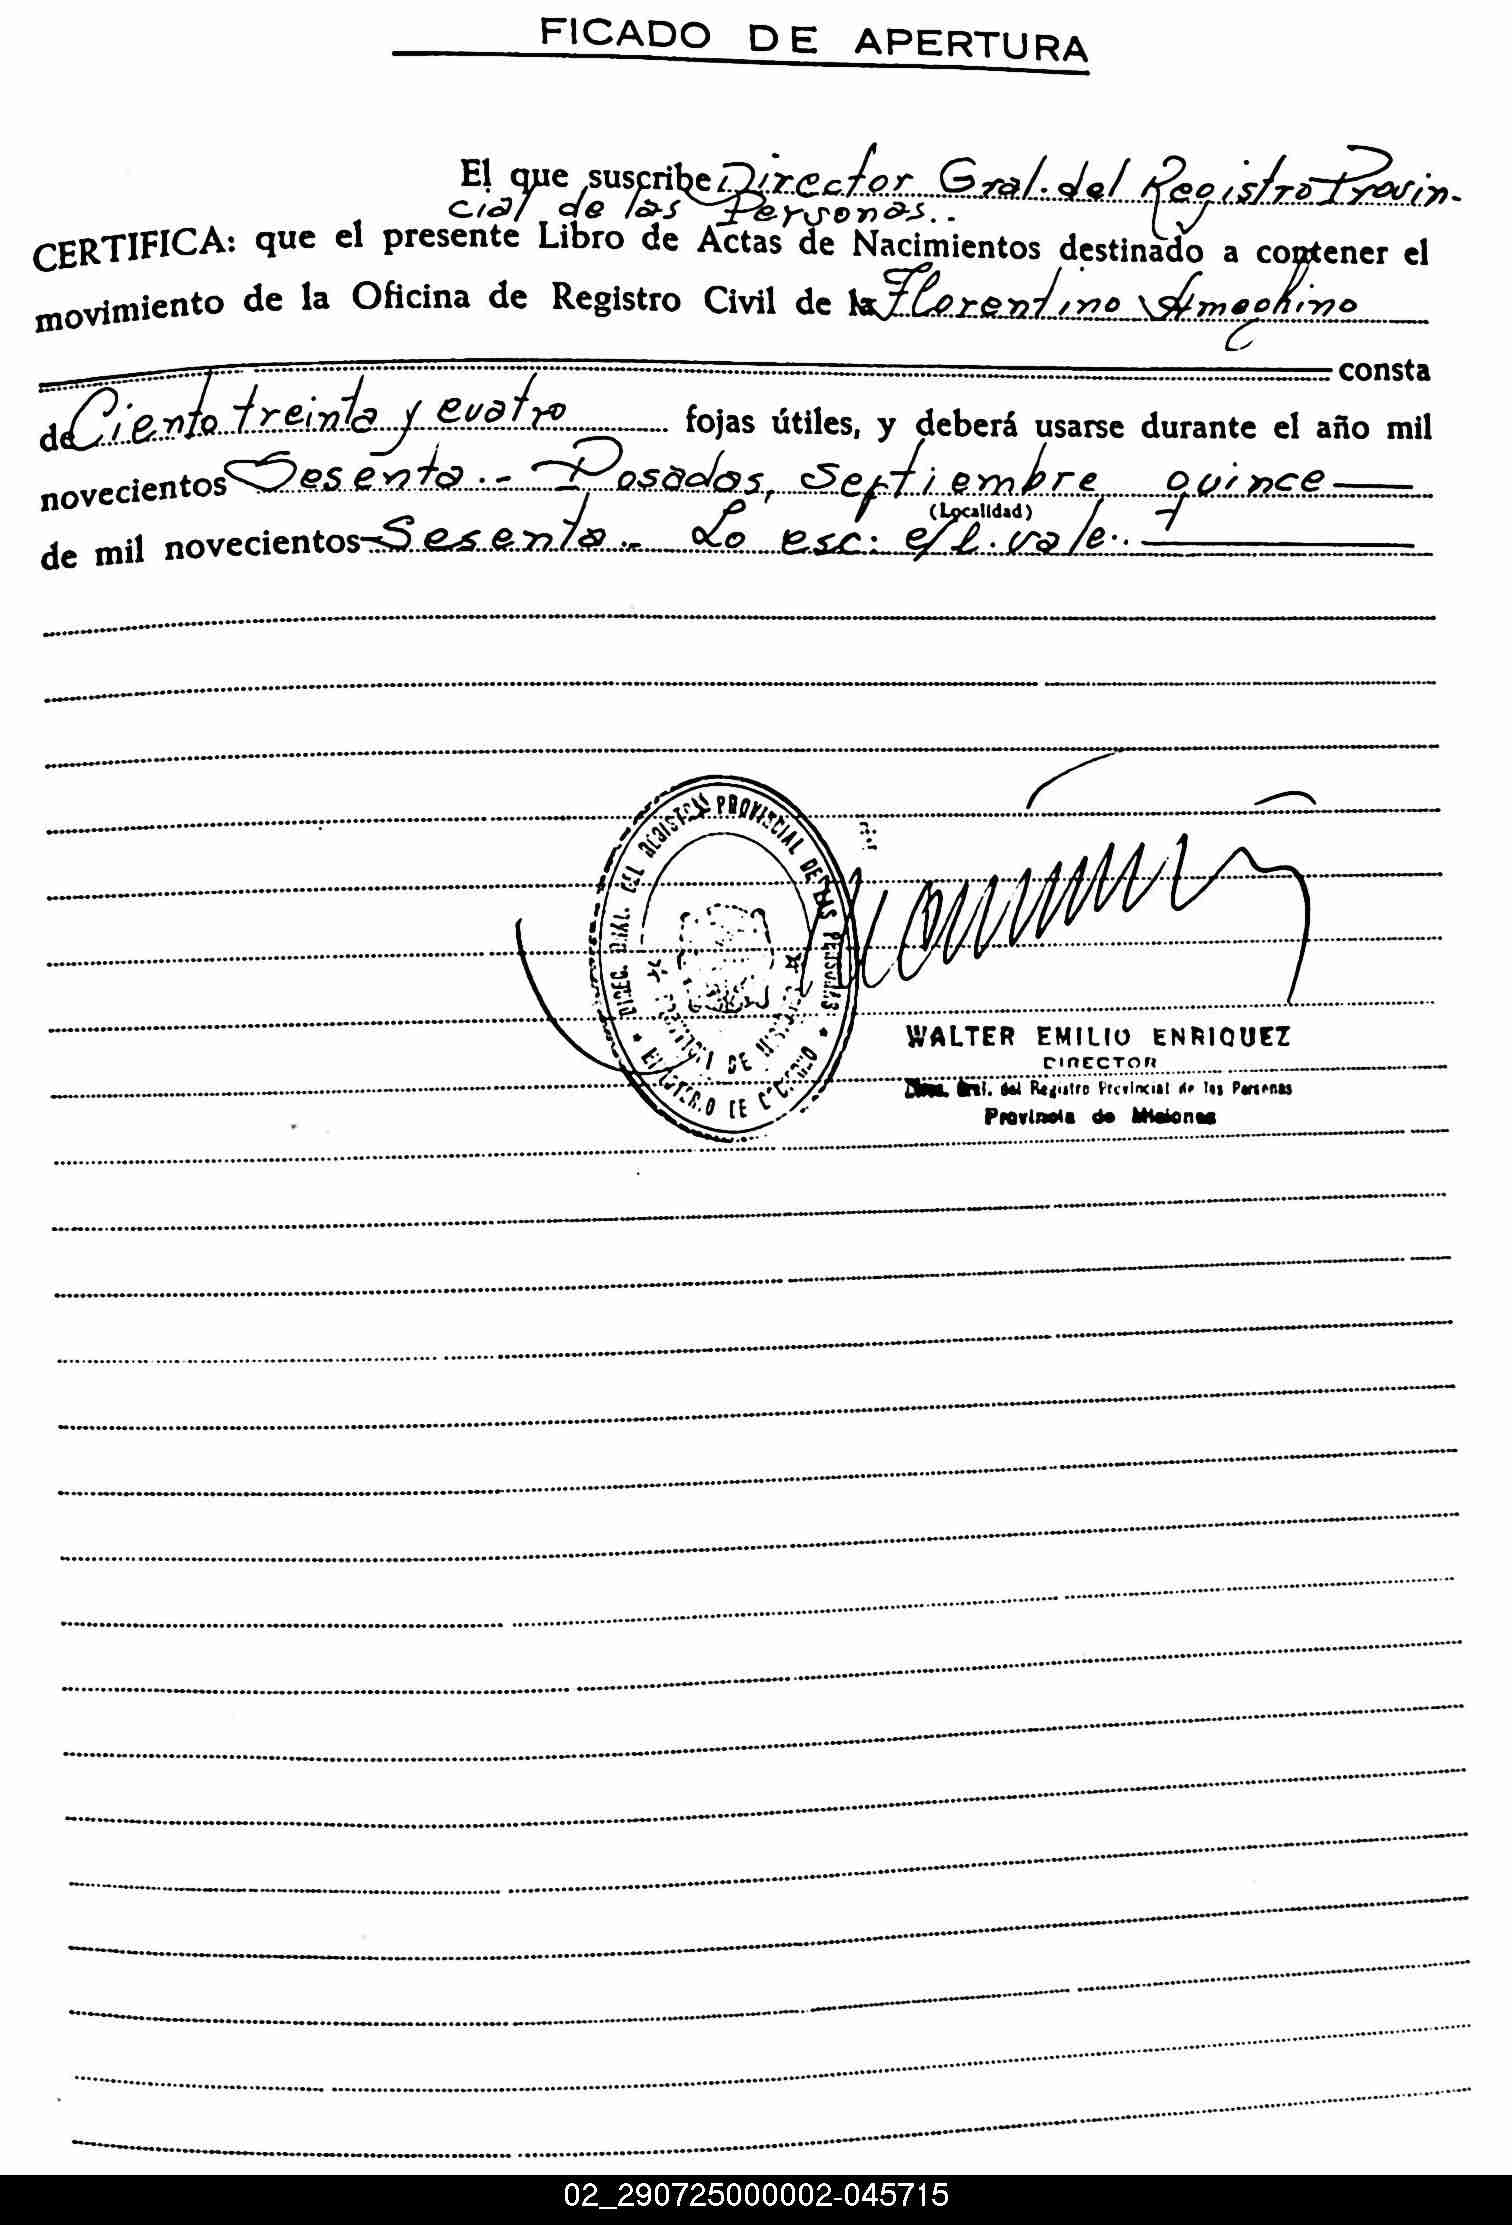 FICADO DE APERTURA
El que suscribe Director Gral. del Registro Provin-
cial de las Personas..
CERTIFICA: que el presente Libro de Actas de Nacimientos destinado a contener el
movimiento de la Oficina de Registro Civil de la Florentino Ameghino
consta
de Ciento treinta y cuatro fojas útiles, y deberá usarse durante el año mil
novecientos Sesenta.- Posadas, Septiembre quince
(Localidad)
de mil novecientos Sesenta.- Lo esc: e/l. vale..
DIREC. GRAL. DEL REGISTRO PROVINCIAL DE LAS PERSONAS
PROVINCIA DE MISIONES
MINISTERIO DE GOBIERNO
WALTER EMILIO ENRIQUEZ
DIRECTOR
Direc. Gral. del Registro Provincial de las Personas
Provincia de Misiones
02_290725000002-045715